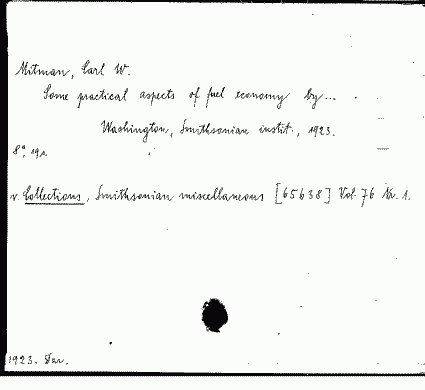 Mitman, Carl W.
Some practical aspects of fuel economy by...
Washington, Smithsonian instit., 1923.
8°, 19 s.
v. Collections, Smithsonian miscellaneous [65638] Vol. 76 Nr. 1.
1923. Dar.